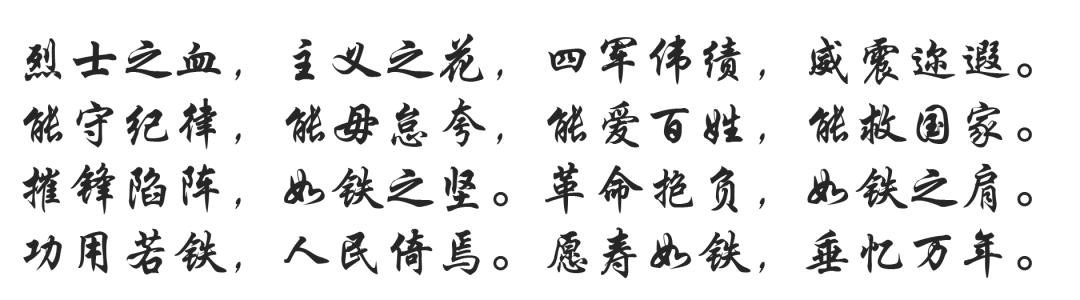 烈士之血，主义之花，四军伟绩，威震迩遐。
能守纪律，能毋怠夸，能爱百姓，能救国家。
摧锋陷阵，如铁之坚。革命抱负，如铁之肩。
功用若铁，人民倚焉。愿寿如铁，垂忆万年。